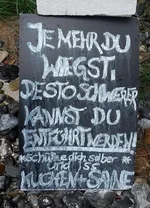 JE MEHR, DU
WIEGST,
DESTO SCHWERER
KANNST DU
ENTFÜHRT WERDEN!
*schütze dich selber*
und iss
KUCHEN + SAHNE